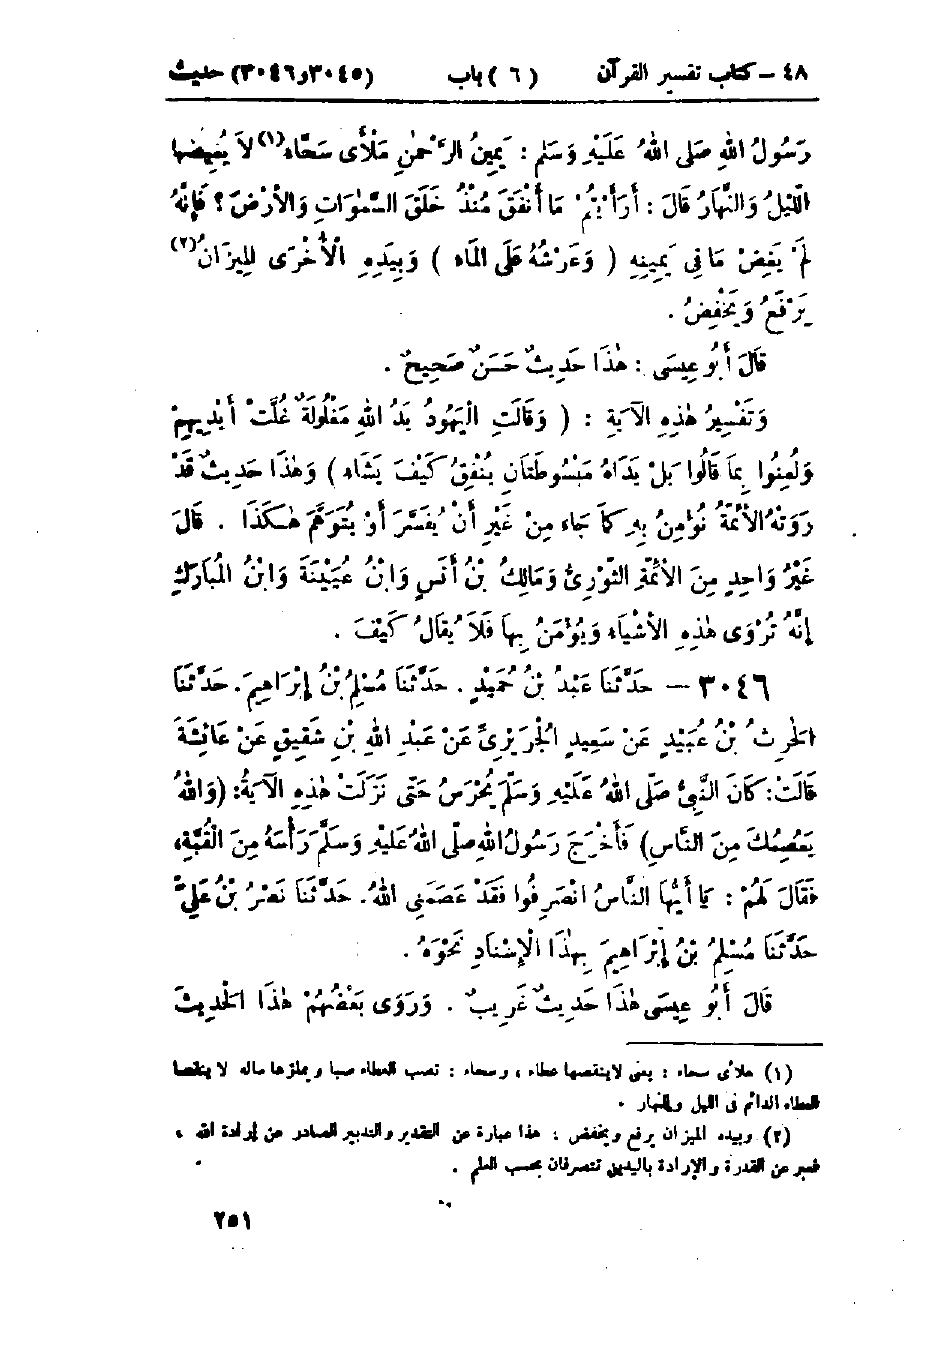 ٤٨ – كتاب تفسير القرآن (٦) باب (٣٠٤٥ و ٣٠٤٦) حديث
رَسُولُ اللهِ صَلى اللهُ عَلَيْهِ وَسَلم : يَمِينُ الرَّحْمٰنِ مَلْأَى سَحَّاء(١) لاَ يُغِيضُها
اللَّيْلُ وَالنَّهارُ قَالَ : أَرَأَيْتُمْ مَا أَنْفَقَ مُنْذُ خَلَقَ السَّمٰوَاتِ وَالأَرْضَ ؟ فَإِنَّهُ
لَمْ يَغِضْ مَا فِى يَمِينِهِ ( وَعَرْشُهُ عَلَى المَاء ) وَبِيَدِهِ الْأُخْرَى المِيزَانُ(٢)
يَرْفَعُ وَيَخْفِضُ .
قَالَ أَبُو عِيسَى : هٰذَا حَدِيثٌ حَسَنٌ صَحِيحٌ .
وَتَفْسِيرُ هٰذِهِ الآيَةِ : ( وَقَالَتِ الْيَهُودُ يَدُ اللهِ مَغْلُولَةٌ غُلَّتْ أَيْدِيهِمْ
وَلُعِنُوا بِمَا قَالُوا بَلْ يَدَاهُ مَبْسُوطَتَانِ يُنْفِقُ كَيْفَ يَشَاء ) وَهٰذَا حَدِيثٌ قَدْ
رَوَتْهُ الأَئِمَّةُ نُؤْمِنُ بِهِ كَمَا جَاء مِنْ غَيْرِ أَنْ يُفَسَّرَ أَوْ يُتَوَهَّمَ هٰكَذَا . قَالَ
غَيْرُ وَاحِدٍ مِنَ الأَئِمَّةِ الثَّوْرِىُّ وَمَالِكُ بْنُ أَنَسٍ وَابْنُ عُيَيْنَةَ وَابْنُ المُبَارَكِ
إِنَّهُ تُرْوَى هٰذِهِ الأَشْيَاء وَيُؤْمَنُ بِهَا فَلاَ يُقَالُ كَيْفَ .
٣٠٤٦ – حَدَّثَنَا عَبْدُ بْنُ حُمَيْدٍ . حَدَّثَنَا مُسْلِمُ بْنُ إِبْرَاهِيمَ . حَدَّثَنَا
الحٰرِثُ بْنُ عُبَيْدٍ عَنْ سَعِيدٍ الجُرَيْرِىِّ عَنْ عَبْدِ اللهِ بْنِ شَقِيقٍ عَنْ عَائِشَةَ
قَالَتْ : كَانَ النَّبِىُّ صَلّى اللهُ عَلَيْهِ وَسَلّمَ يُحْرَسُ حَتّى نَزَلَتْ هٰذِهِ الآيَةُ : (وَاللهُ
يَعْصِمُكَ مِنَ النَّاسِ) فَأَخْرَجَ رَسُولُ اللهِ صَلّى اللهُ عَلَيْهِ وَسَلَّمَ رَأْسَهُ مِنَ الْقُبَّةِ ،
فَقَالَ لَهُمْ : يَا أَيُّهَا النَّاسُ انْصَرِفُوا فَقَدْ عَصَمَنِى اللهُ . حَدَّثَنَا نَصْرُ بْنُ عَلِىٍّ
حَدَّثَنَا مُسْلِمُ بْنُ إِبْرَاهِيمَ بِهٰذَا الْإِسْنَادِ نَحْوَهُ .
قَالَ أَبُو عِيسَى هٰذَا حَدِيثٌ غَرِيبٌ . وَرَوَى بَعْضُهُمْ هٰذَا الحَدِيثَ
(١) ملأى سحاء : يعنى لا ينقصها عطاء ، وسحاء : تصب العطاء صبا ويملؤها ماله لا ينقصا
العطاء الدائم فى الليل والنهار .
(٢) وبيده الميزان يرفع ويخفض : هذا عبارة عن التقدير والتدبير الصادر عن إرادة الله ،
فعبر عن القدرة والإرادة باليدين تتصرفان بحسب العلم .
٢٥١